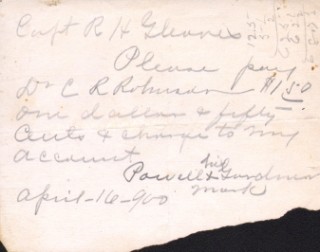 Capt R H Gleaves
Please pay
Dr C R Robinson $1.50
one dollar & fifty
Cents & charge to my
account
Powell his Goodman
mark
April-16-900